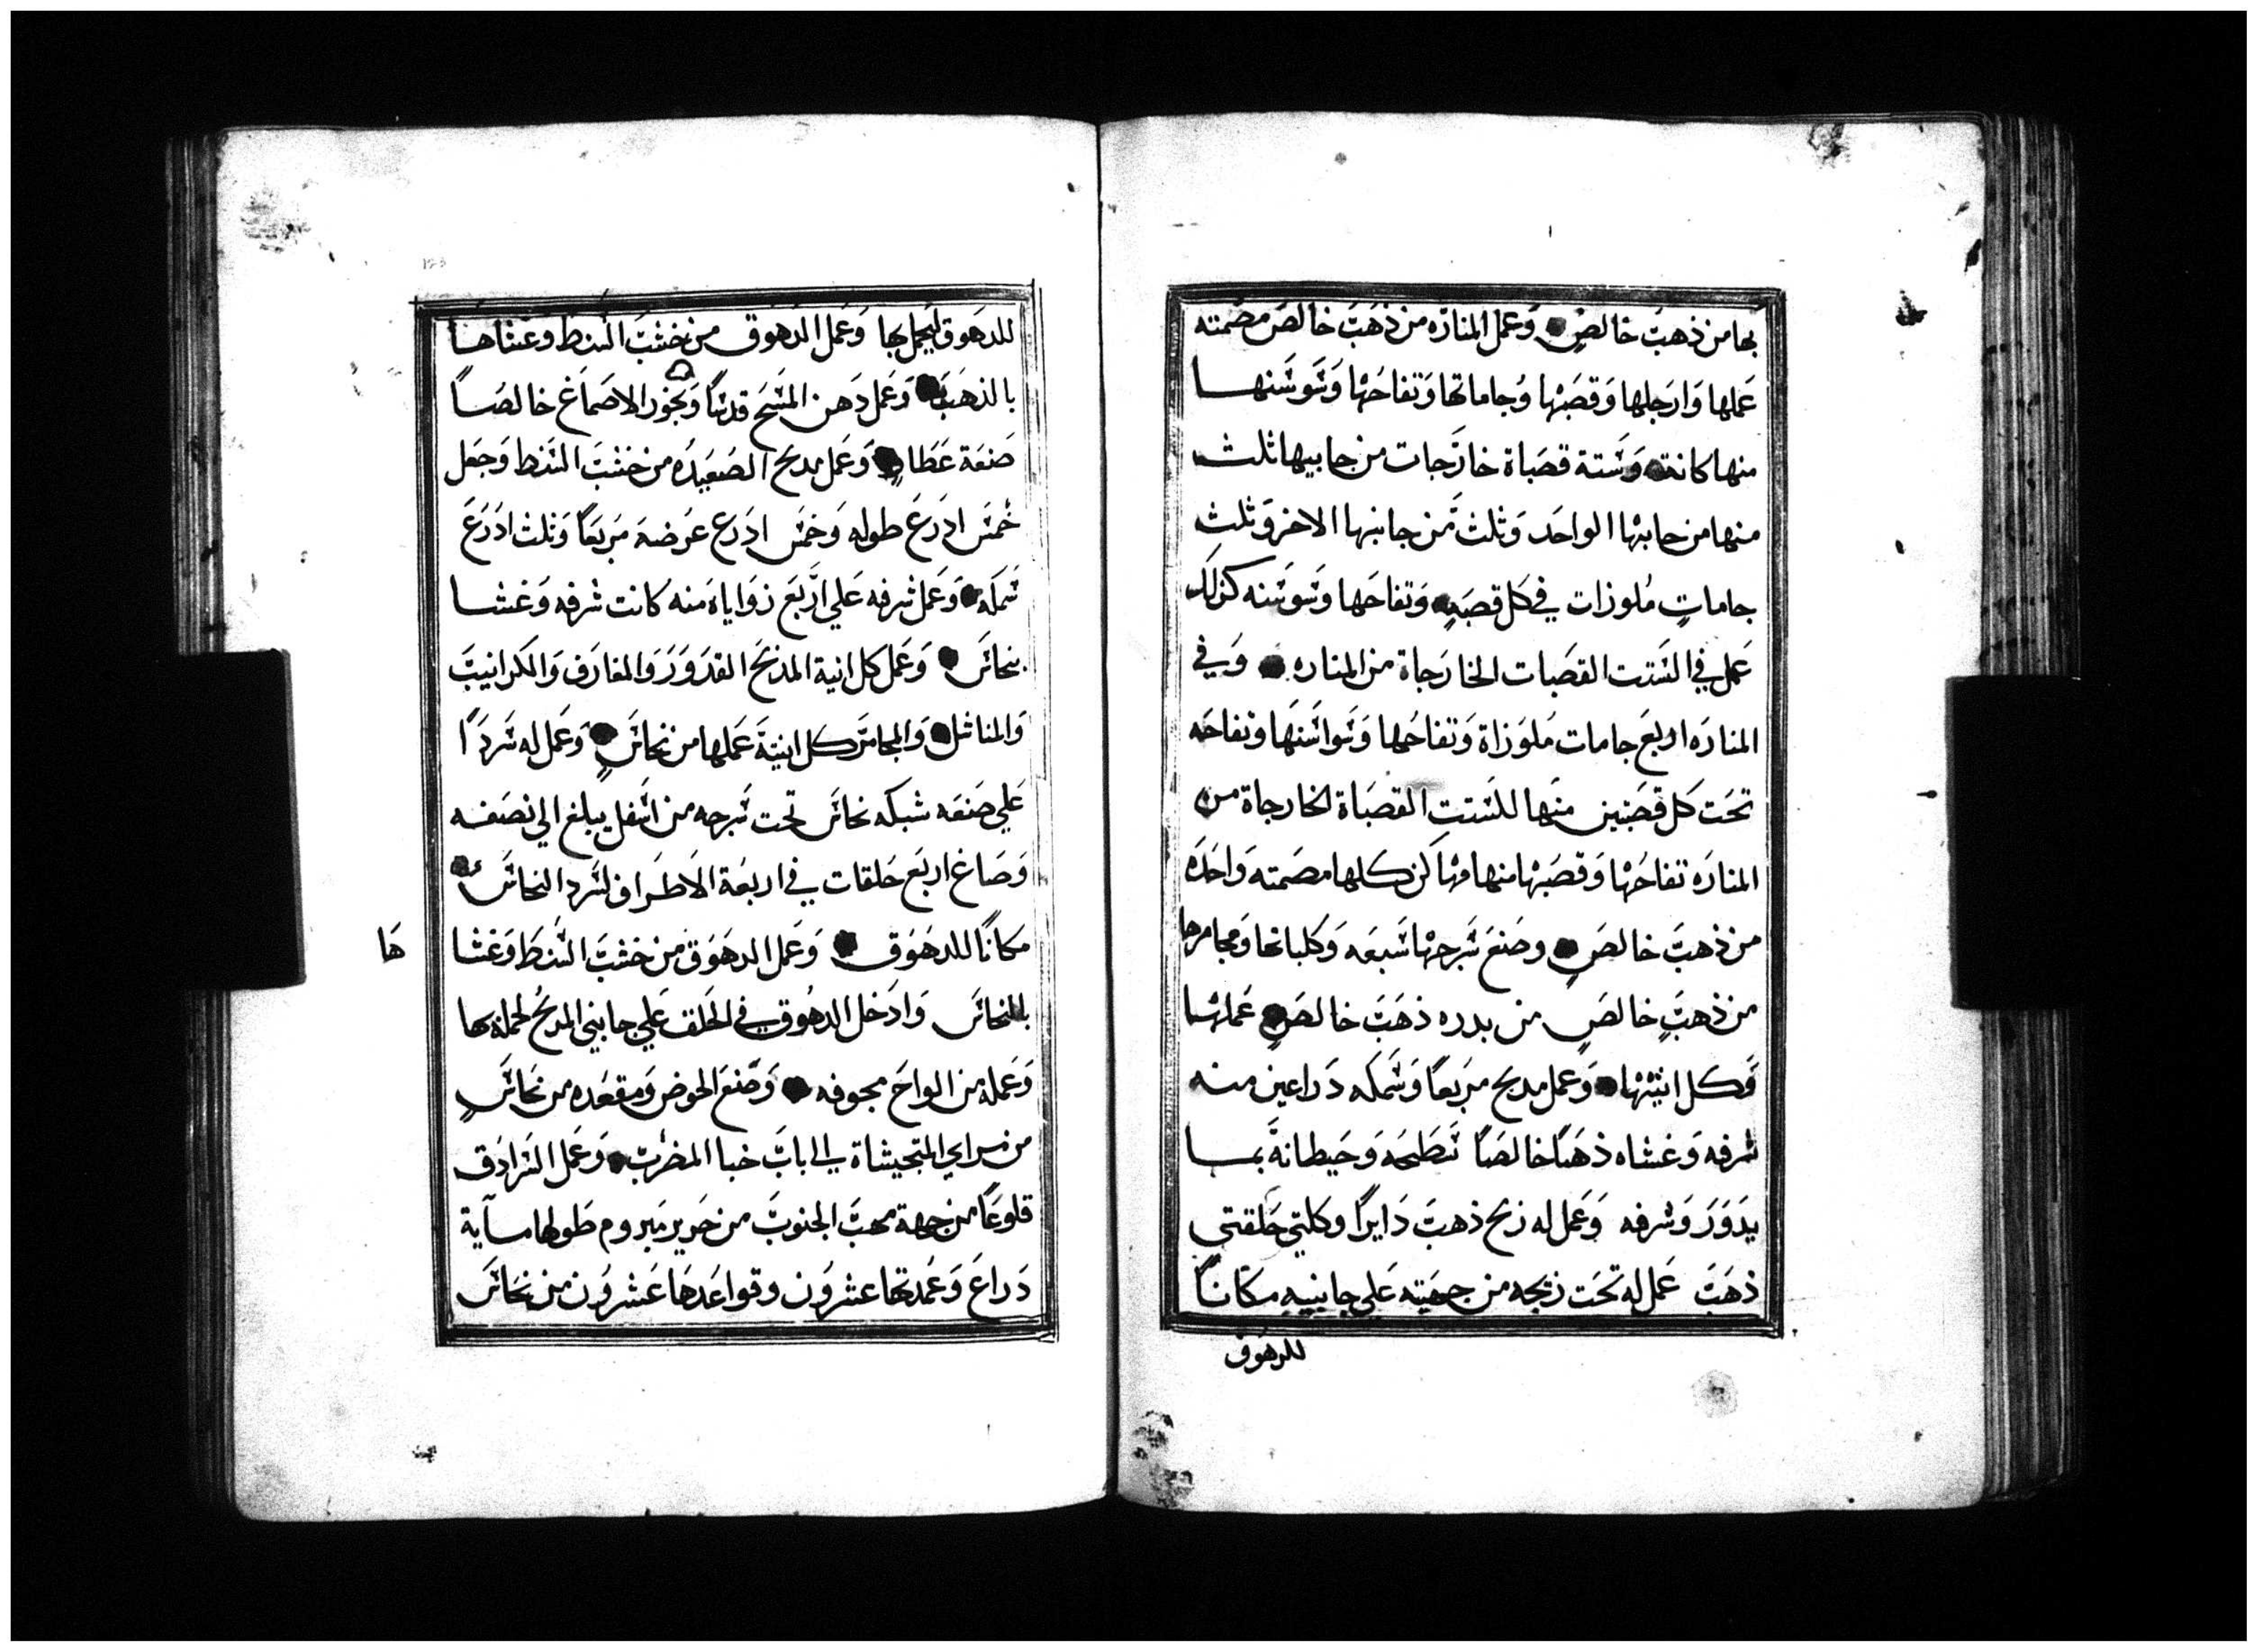 بها من ذهب خالص وعمل المناره من ذهب خالص مصمته
عملها وارجلها وقصبتها وجاماتها وتفاحتها وسوسنها
منها كانت وستة قصباة خارجات من جانبيها ثلث
منها من جانبها الواحد وثلث من جانبها الاخر وثلث
جامات ملوزات في كل قصبه وتفاحها وسوسنه كذلك
عمل في الستت القصبات الخارجاة من المناره وفي
المناره اربع جامات ملوزاة وتفاحها وسواسنها وتفاحه
تحت كل قصبتين منها للستت القصباة الخارجاة من
المناره تفاحتها وقصبتها منها كن كلها مصمته واحده
من ذهب خالص وصنع سرجها سبعه وكلباتها ومجامرها
من ذهب خالص من بدره ذهب خالص عملها
وكل انيتها وعمل مدبح مربعا وسمكه دراعين منه
شرفه وغشاه ذهبا خالصا تسطيحه وحيطانه بما
يدور وشرفه وعمل له زيح ذهب دايرا وكلتي حلقتي
ذهب عمل له تحت زيجه من جهتيه علي جانبيه مكانا
للدهوق
للدهوق ليحمل بها وعمل الدهوق من خشب السنط وغشاها
بالذهب وعمل دهن المسح قدسا وبخور الاصماغ خالصا
صنعة عطار وعمل مدبح الصعيده من خشب السنط وجعل
خمس ادرع طوله وخمس ادرع عرضه مربعا وثلث ادرع
سمكه وعمل شرفه علي اربع زواياه منه كانت شرفه وغشا
بنحاس وعمل كل انية المدبح القدور والمغارف والكرانيب
والمناشل والمجامر كل انيته عملها من نحاس وعمل له سردا
علي صنعه شبكه نحاس تحت سرجه من اسفل يبلغ الي نصفه
وصاغ اربع حلقات في اربعة الاطراف لسرد النحاس
مكانا للدهوق وعمل الدهوق من خشب السنط وغشا
ها
بالنحاس وادخل الدهوق في الحلق علي جانبي المدبح لحمله بها
وعمله من الواح مجوفه وصنع الحوض ومقعده من نحاس
من مراي المتجيشاة الي باب خبا المضرب وعمل السرادق
قلوعا من جهة مهب الجنوب من حرير مبروم طولها ماية
دراع وعمدتها عشرون وقواعدها عشرون من نحاس